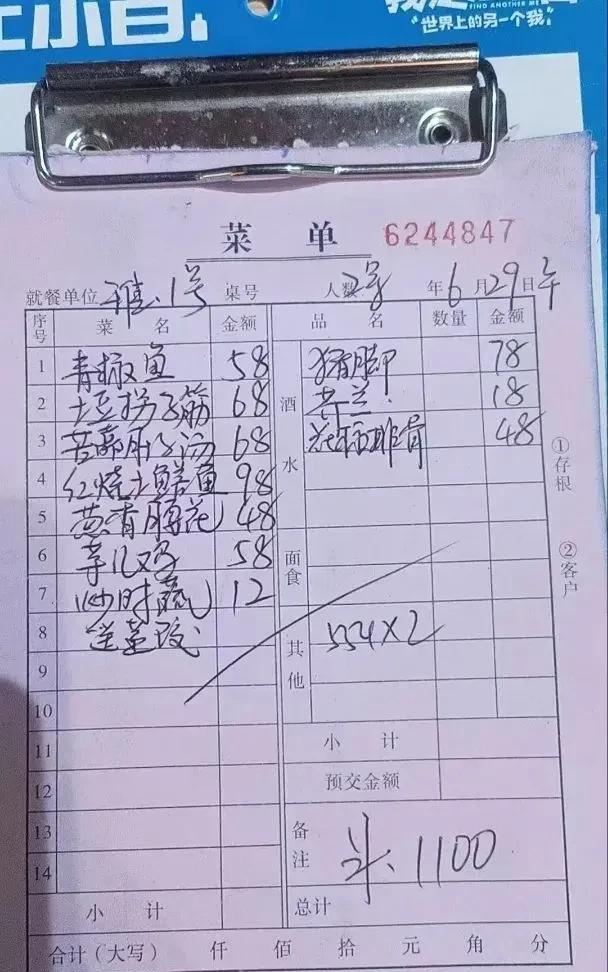 FIND ANOTHER ME
"世界上的另一个我"
菜 单 6244847
就餐单位 雅.1号 桌号 人数 2号 年6月29日午
序号 菜 名 金额 品 名 数量 金额
1 青椒鱼 58 酒水 猪脚 78
2 土豆拐子筋 68 芥兰 18
3 68 排骨 48
4 红烧土鲜鱼 98
5 葱香腰花 48
6 58 面食
7 炒时蔬 12
8 其他 554×2
9
10
11 小 计
12 预交金额
13 备注 1100
14
小 计 总计
合计(大写) 仟 佰 拾 元 角 分
①存根
②客户